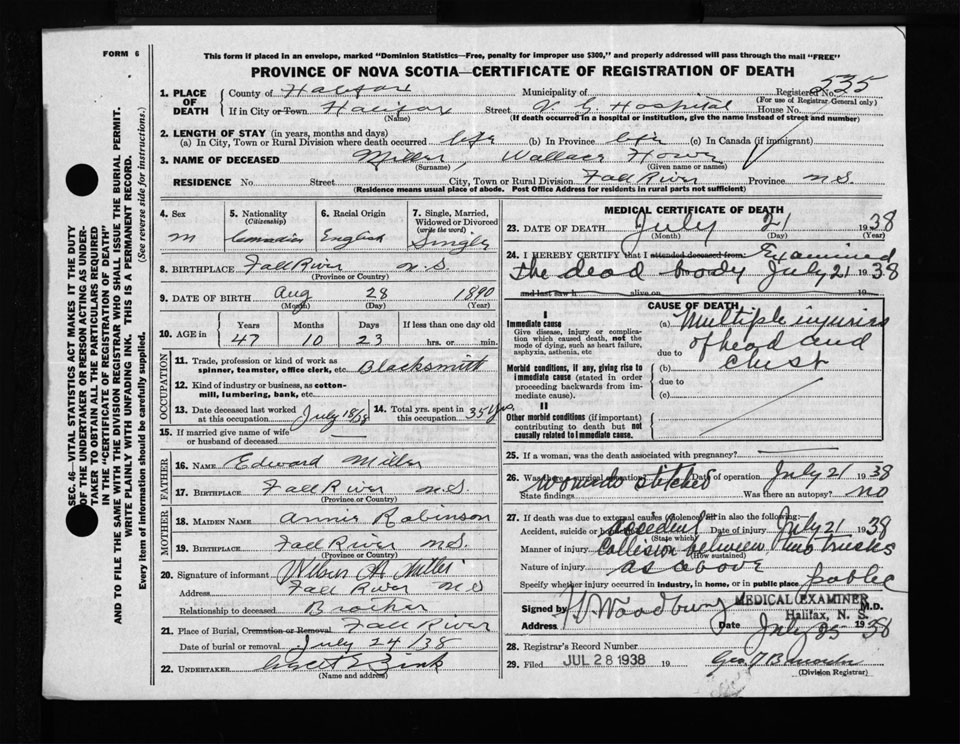 FORM 6
This form if placed in an envelope, marked "Dominion Statistics—Free, penalty for improper use $300," and properly addressed will pass through the mail "FREE"
PROVINCE OF NOVA SCOTIA—CERTIFICATE OF REGISTRATION OF DEATH
535
1. PLACE OF DEATH
County of Halifax Municipality of Registered No.
(For use of Registrar General only)
If in City or Town Halifax Street V. G. Hospital House No.
(Name) (If death occurred in a hospital or institution, give the name instead of street and number)
2. LENGTH OF STAY (in years, months and days)
(a) In City, Town or Rural Division where death occurred life (b) In Province life (c) In Canada (if immigrant)
3. NAME OF DECEASED Miller, Wallace Howe
(Surname) (Given name or names)
RESIDENCE No. Street City, Town or Rural Division Fall River Province N.S.
(Residence means usual place of abode. Post Office Address for residents in rural parts not sufficient)
4. Sex 5. Nationality (Citizenship) 6. Racial Origin 7. Single, Married, Widowed or Divorced (write the word)
M Canadian English Single
8. BIRTHPLACE Fall River N.S.
(Province or Country)
9. DATE OF BIRTH Aug 28 1890
(Month) (Day) (Year)
10. AGE in Years Months Days If less than one day
47 10 23 hrs. or min.
OCCUPATION
11. Trade, profession or kind of work as spinner, teamster, office clerk, etc. Blacksmith
12. Kind of industry or business, as cotton-mill, lumbering, bank, etc.
13. Date deceased last worked at this occupation July 18/38
14. Total yrs. spent in this occupation 35 yrs.
15. If married give name of wife or husband of deceased
FATHER
16. NAME Edward Miller
17. BIRTHPLACE Fall River N.S.
(Province or Country)
MOTHER
18. MAIDEN NAME Annie Robinson
19. BIRTHPLACE Fall River N.S.
(Province or Country)
20. Signature of informant A. Miller
Address Fall River N.S
Relationship to deceased Brother
21. Place of Burial, Cremation or Removal Fall River
Date of burial or removal July 24/38
22. UNDERTAKER E Zink
(Name and address)
MEDICAL CERTIFICATE OF DEATH
23. DATE OF DEATH July 21 1938
(Month) (Day) (Year)
24. I HEREBY CERTIFY that I attended deceased from: Examined
the dead body July 21 1938
and last saw h alive on 19
CAUSE OF DEATH
I
Immediate cause
Give disease, injury or complication which caused death, not the mode of dying, such as heart failure, asphyxia, asthenia, etc
(a) Multiple injuries
due to of head and
Morbid conditions, if any, giving rise to immediate cause (stated in order proceeding backwards from immediate cause).
(b) chest
due to
(c)
II
Other morbid conditions (if important) contributing to death but not causally related to immediate cause.
25. If a woman, was the death associated with pregnancy?
26. Was there a surgical operation? Wounds stitched Date of operation July 21 1938
State findings Was there an autopsy? no
27. If death was due to external causes (violence) fill in also the following:—
Accident, suicide or accident Date of injury July 21 1938
(State which)
Manner of injury Collision between two trucks
(How sustained)
Nature of injury as above
Specify whether injury occurred in industry, in home, or in public place public
Signed by Woodbury MEDICAL EXAMINER M.D.
Address Halifax, N. S.
Date July 25 1938
28. Registrar's Record Number
29. Filed JUL 28 1938 19
(Division Registrar)
SEC. 46—VITAL STATISTICS ACT MAKES IT THE DUTY
OF THE UNDERTAKER OR PERSON ACTING AS UNDER-
TAKER TO OBTAIN ALL THE PARTICULARS REQUIRED
IN THE "CERTIFICATE OF REGISTRATION OF DEATH"
AND TO FILE THE SAME WITH THE DIVISION REGISTRAR WHO SHALL ISSUE THE BURIAL PERMIT.
WRITE PLAINLY WITH UNFADING INK. THIS IS A PERMANENT RECORD.
Every item of information should be carefully supplied. (See reverse side for instructions.)